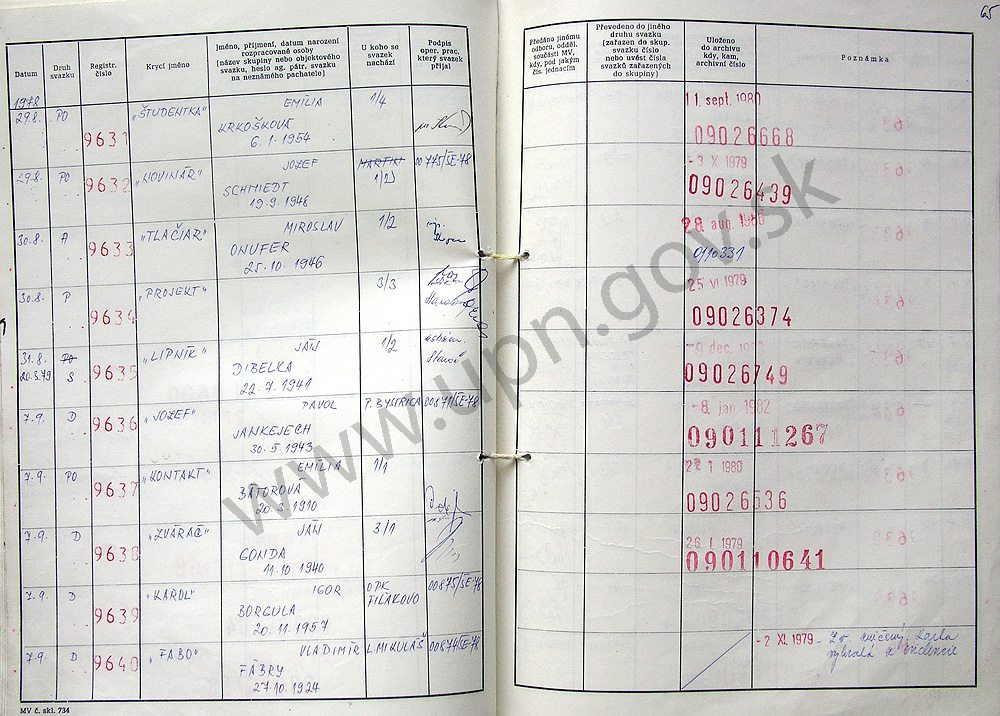 65
Datum
Druh
svazku
Registr.
číslo
Krycí jméno
Jméno, příjmení, datum narození
rozpracované osoby
(název skupiny nebo objektového
svazku, heslo ag. pátr. svazku
na neznámého pachatele)
U koho se
svazek
nachází
Podpis
oper. prac.
který svazek
přijal
Předáno jinému
odboru, odděl.
součásti MV,
kdy, pod jakým
čís. jednacím
Převedeno do jiného
druhu svazku
(zařazen do skup.
svazku číslo
nebo uvést čísla
svazků zařazených
do skupiny)
Uloženo
do archivu
kdy, kam,
archivní číslo
Poznámka
1978
29.8. PO 9631 "ŠTUDENTKA" EMÍLIA 1/4
KRKOŠKOVÁ
6.1.1954
11. sept. 1980
09026668
29.8. PO 9632 "NOVINÁR" JOZEF MARTIN 00775/ŠE-78
SCHMIEDT 1/2
19.9.1948
-3 X 1979
09026439
30.8. A 9633 "TLAČIAR" MIROSLAV 1/2
ONUFER
25.10.1946
28. aug. 1980
0110331
30.8. P 9634 "PROJEKT" 3/3
25 VI 1979
09026374
31.8. PO 9635 "LIPNÍK" JÁN 1/2
20.3.79 S DIBELKA
22.7.1941
-9 dec. 1980
09026749
7.9. D 9636 "JOZEF" PAVOL P. BYSTRICA 00871/ŠE-78
JANKEJECH
30.5.1943
-8. jan. 1982
090111267
7.9. PO 9637 "KONTAKT" EMÍLIA 1/1
BÁTOROVÁ
20.3.1910
1 1980
09026536
7.9. D 9638 "ZVÁRAČ" JÁN 3/1
GONDA
11.10.1940
26 I 1979
090110641
7.9. D 9639 "KAROL" IGOR OPK 00875/ŠE-78
BORGULA FIĽAKOVO
20.11.1957
7.9. D 9640 "FABO" VLADIMÍR L. MIKULÁŠ 00874/ŠE-78
FÁBRY
27.10.1924
-2 XI. 1979 -
z evidencie
MV č. skl. 734
www.upn.gov.sk